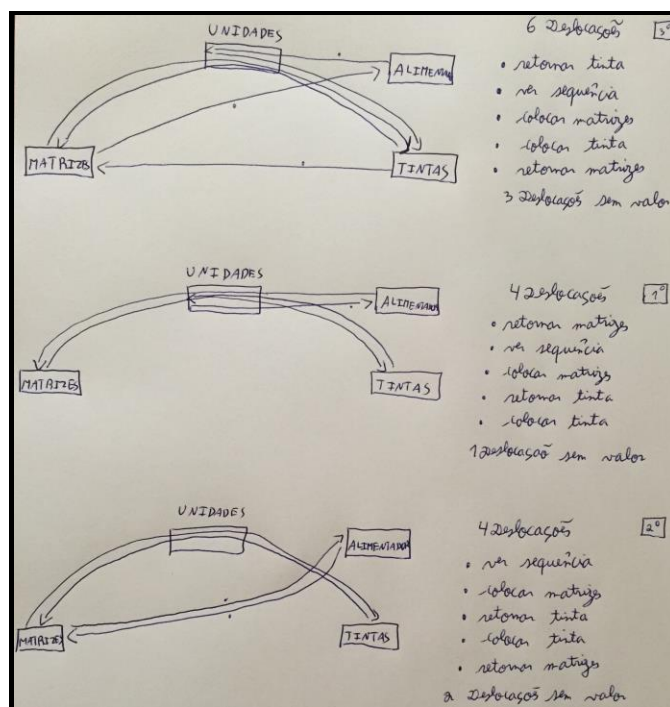 UNIDADES
ALIMENTAD
MATRIZES
TINTAS
6 Deslocações
3º
• retornar tinta
• ver sequência
• colocar matrizes
• colocar tinta
• retornar matrizes
3 Deslocações sem valor
UNIDADES
ALIMENTADOR
MATRIZES
TINTAS
4 Deslocações
1º
• retornar matrizes
• ver sequência
• colocar matrizes
• retornar tinta
• colocar tinta
1 Deslocação sem valor
UNIDADES
ALIMENTADOR
MATRIZES
TINTAS
4 Deslocações
2º
• ver sequência
• colocar matrizes
• retornar tinta
• colocar tinta
• retornar matrizes
2 Deslocações sem valor